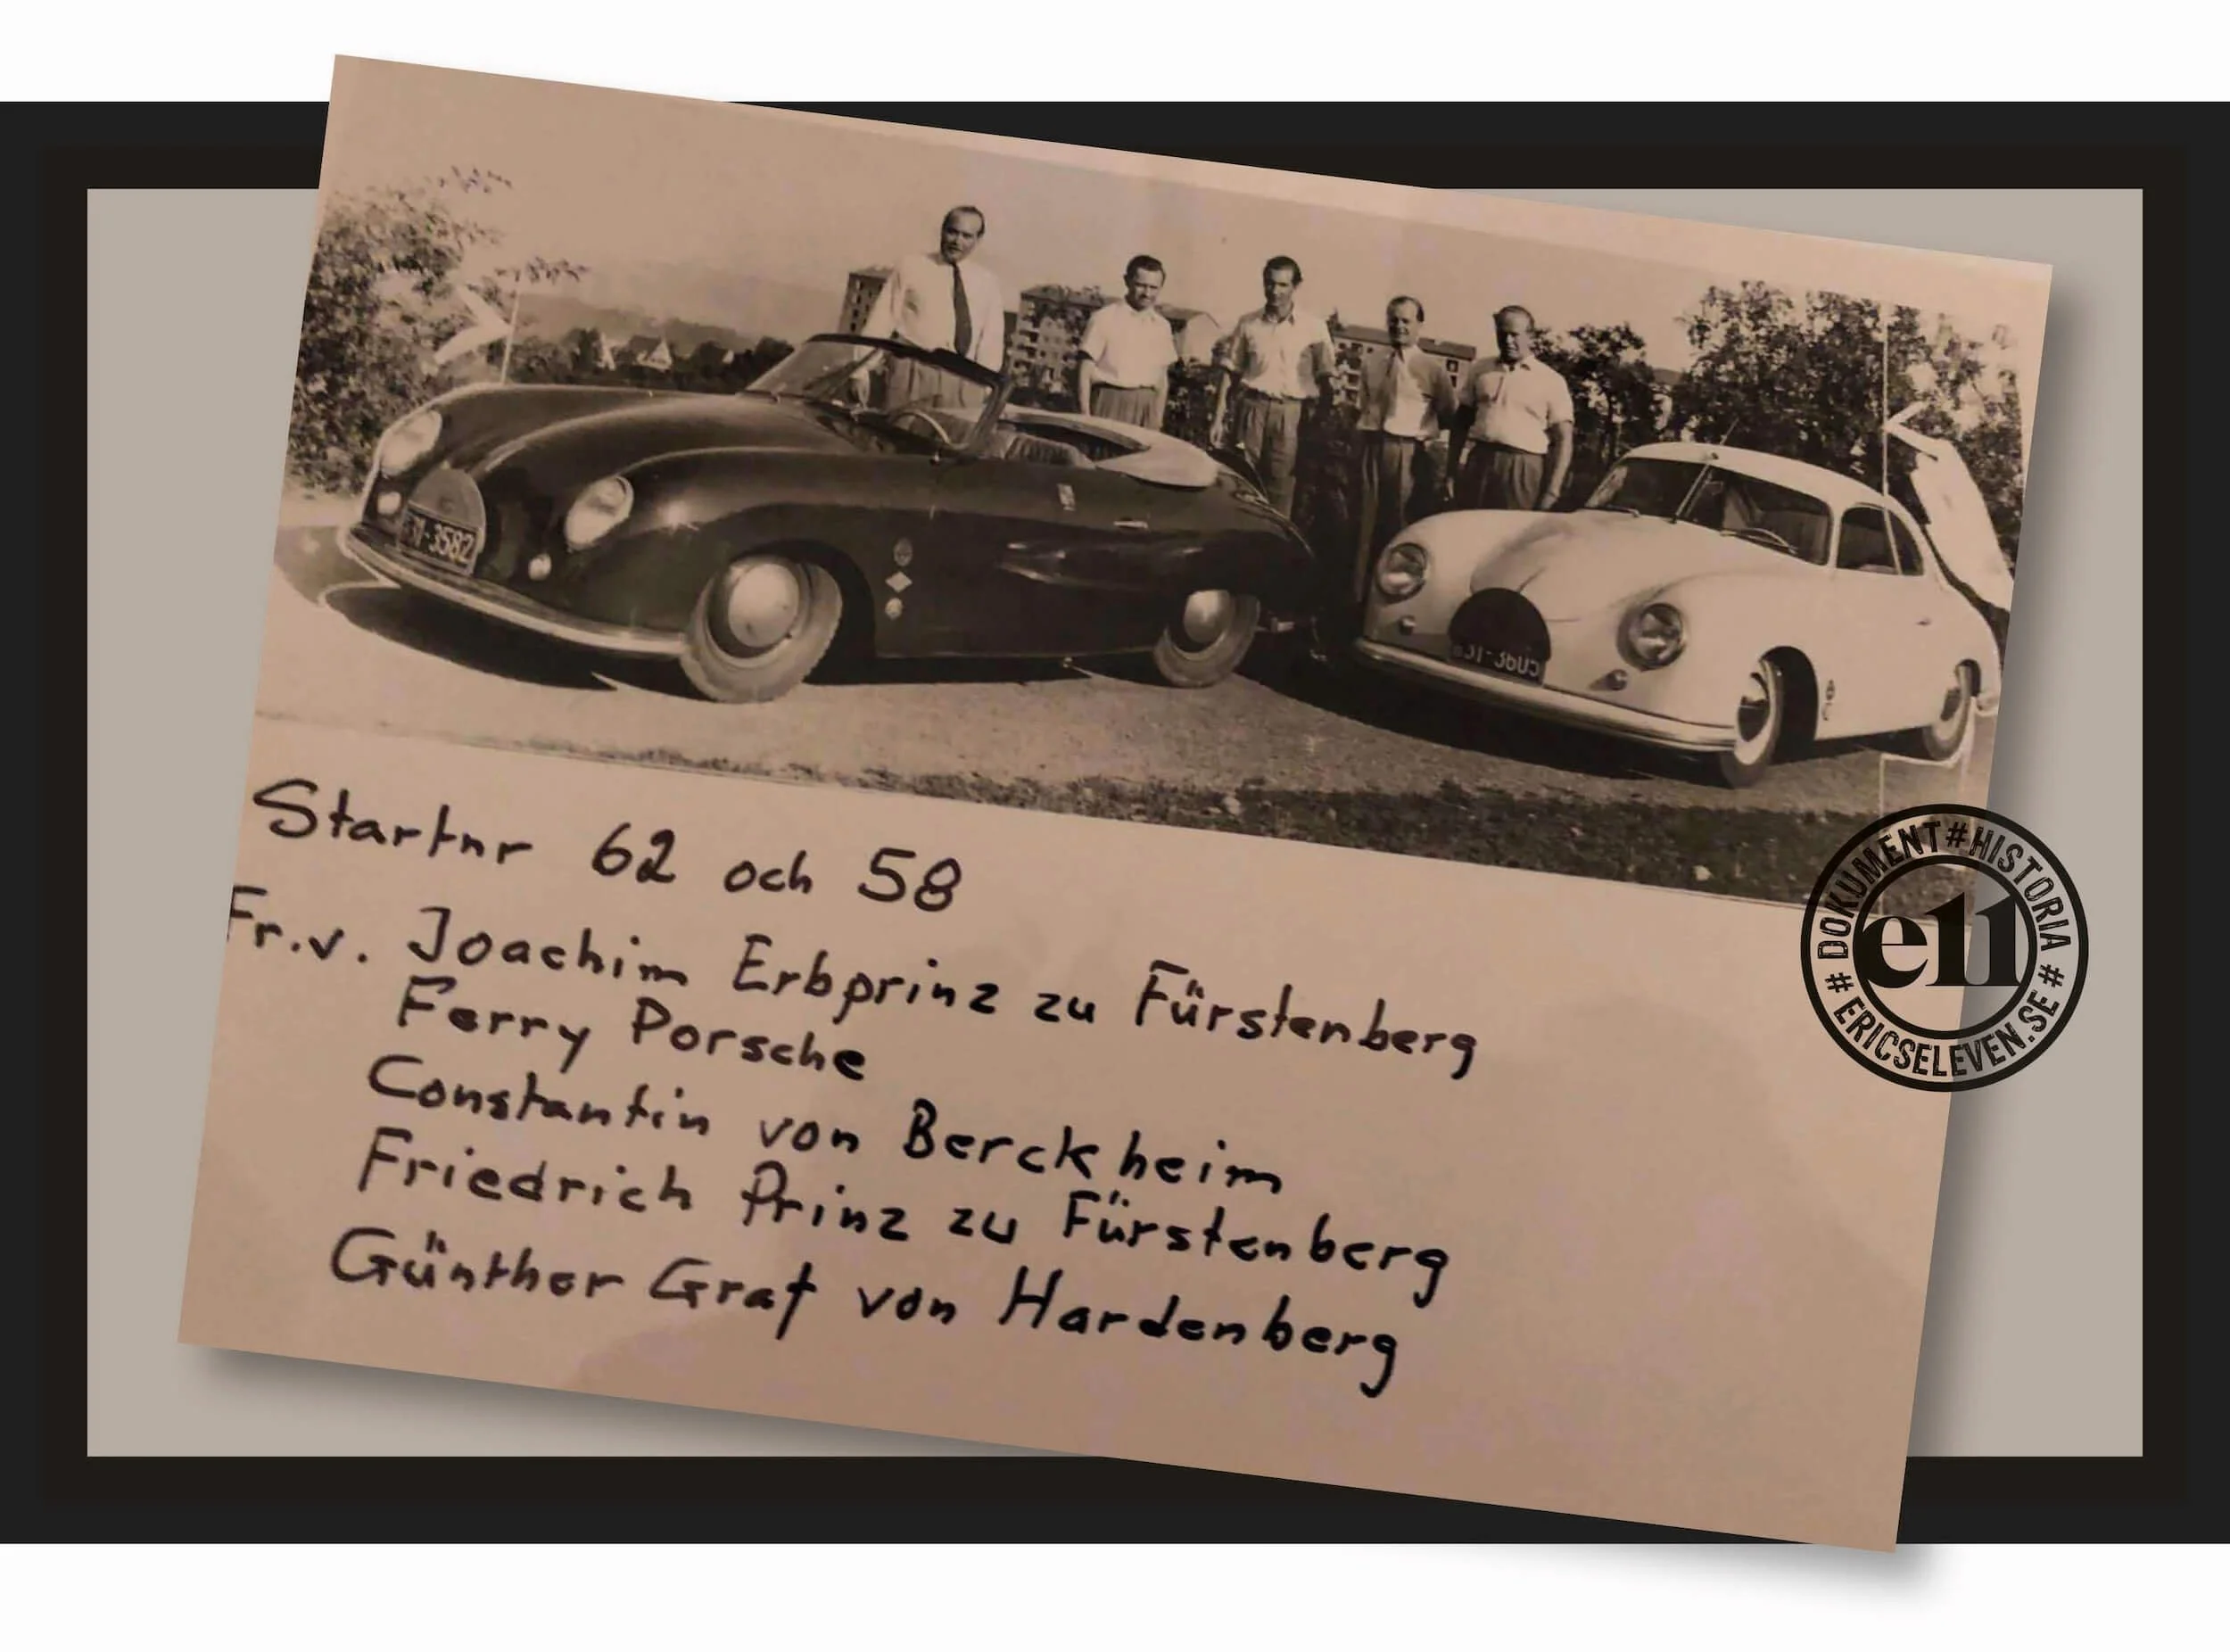 31-3582
31-3605
Startnr 62 och 58
Fr.v. Joachim Erbprinz zu Fürstenberg
Ferry Porsche
Constantin von Berckheim
Friedrich Prinz zu Fürstenberg
Günther Graf von Hardenberg
# DOKUMENT # HISTORIA # ERICSELEVEN.SE
e11